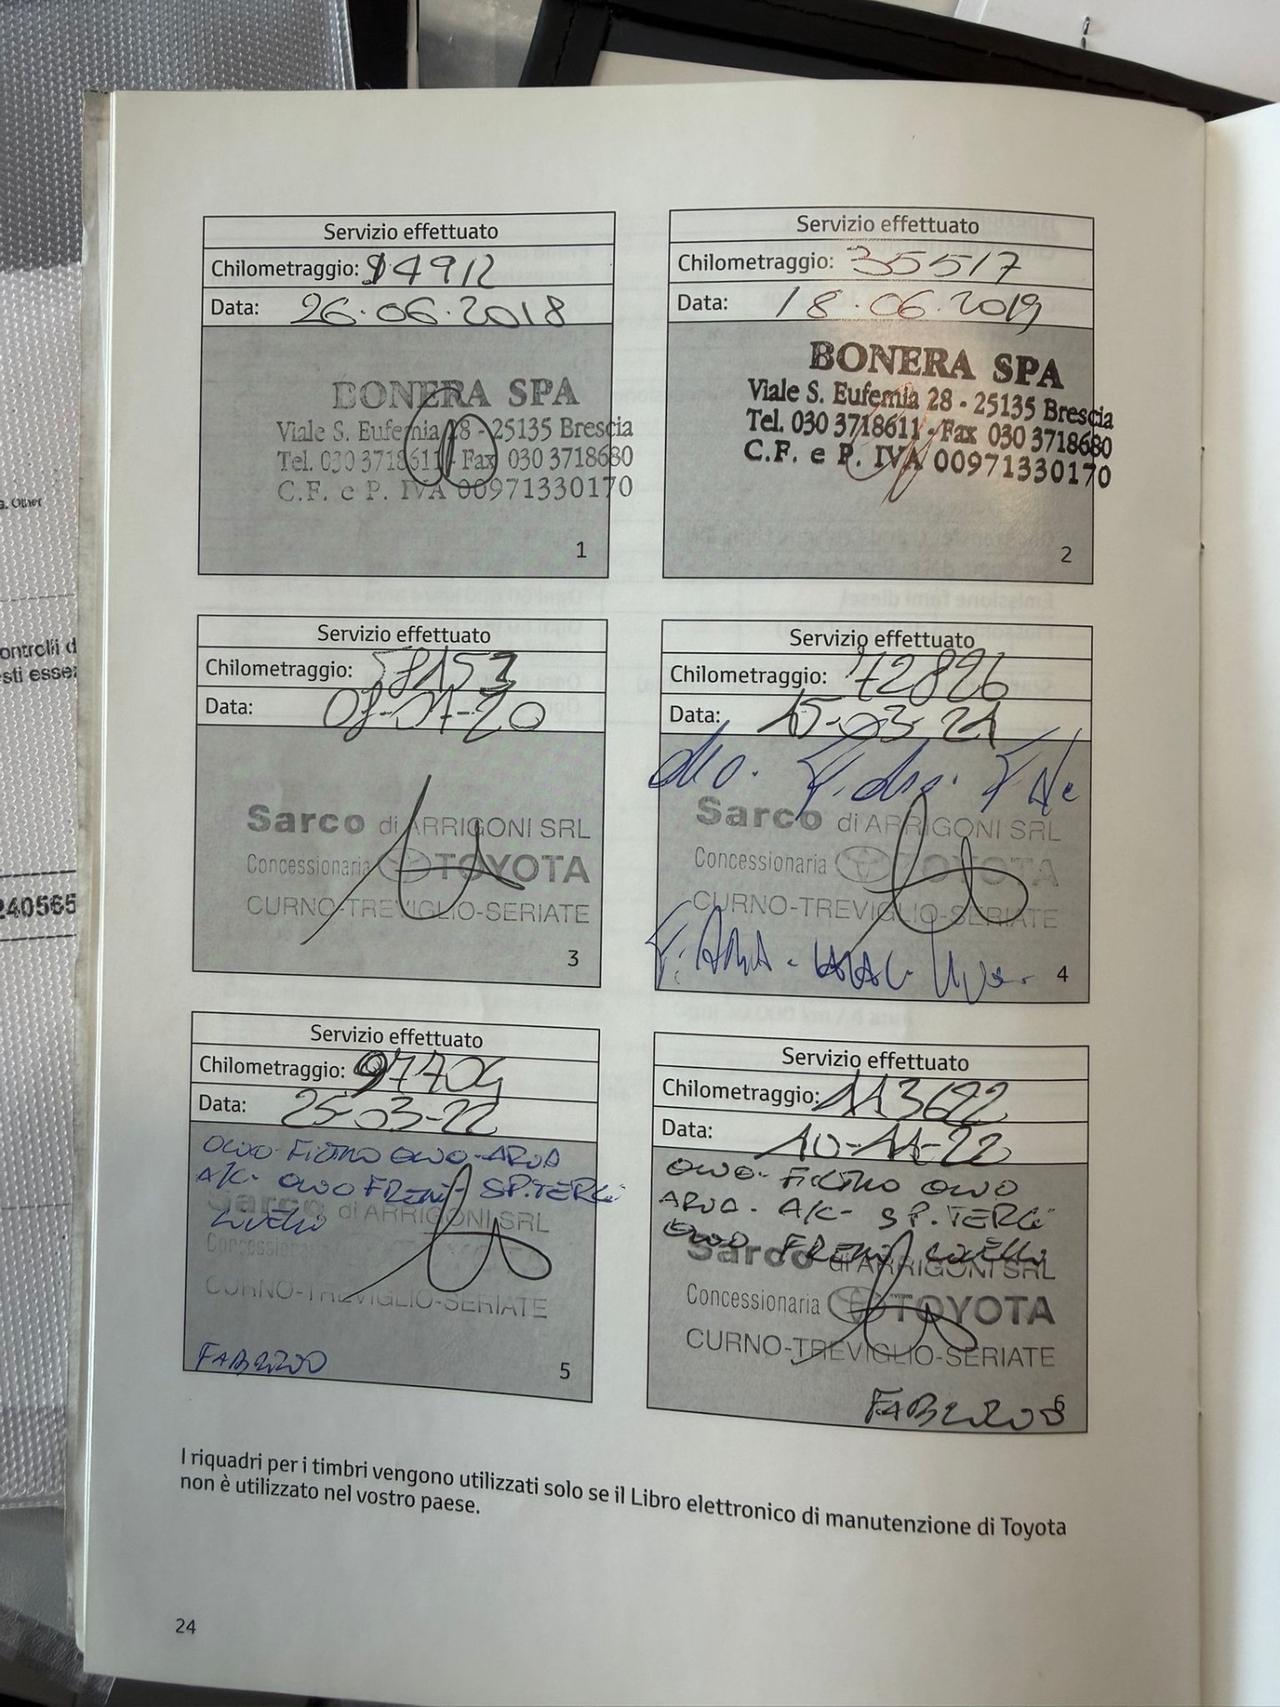 s. Other
ontrolli d
sti esse
240565
Servizio effettuato
Chilometraggio: 14912
Data: 26.06.2018
BONERA SPA
Viale S. Eufemia 28 - 25135 Brescia
Tel. 030 3718611 - Fax 030 3718680
C.F. e P. IVA 00971330170
1
Servizio effettuato
Chilometraggio: 35517
Data: 18.06.2019
BONERA SPA
Viale S. Eufemia 28 - 25135 Brescia
Tel. 030 3718611 - Fax 030 3718680
C.F. e P. IVA 00971330170
2
Servizio effettuato
Chilometraggio: 58153
Data:
Sarco di ARRIGONI SRL
Concessionaria TOYOTA
CURNO-TREVIGLIO-SERIATE
3
Servizio effettuato
Chilometraggio: 72826
Data: 15-03-21
Sarco di ARRIGONI SRL
Concessionaria TOYOTA
CURNO-TREVIGLIO-SERIATE
4
Servizio effettuato
Chilometraggio: 97404
Data: 25-03-22
OLIO-FILTRO OLIO-ARIA
A/C- OLIO FRENI- SP.TERGI
LIVELLO
Sarco di ARRIGONI SRL
Concessiona
CURNO-TREVIGLIO-SERIATE
FABRIZIO
5
Servizio effettuato
Chilometraggio: 113622
Data: 10-11-22
OLIO- FILTRO OLIO
ARIA- A/C- SP.TERGI
OLIO FRENI LIVELLI
Sarco di ARRIGONI SRL
Concessionaria TOYOTA
CURNO-TREVIGLIO-SERIATE
FABRIZIO
6
I riquadri per i timbri vengono utilizzati solo se il Libro elettronico di manutenzione di Toyota
non è utilizzato nel vostro paese.
24